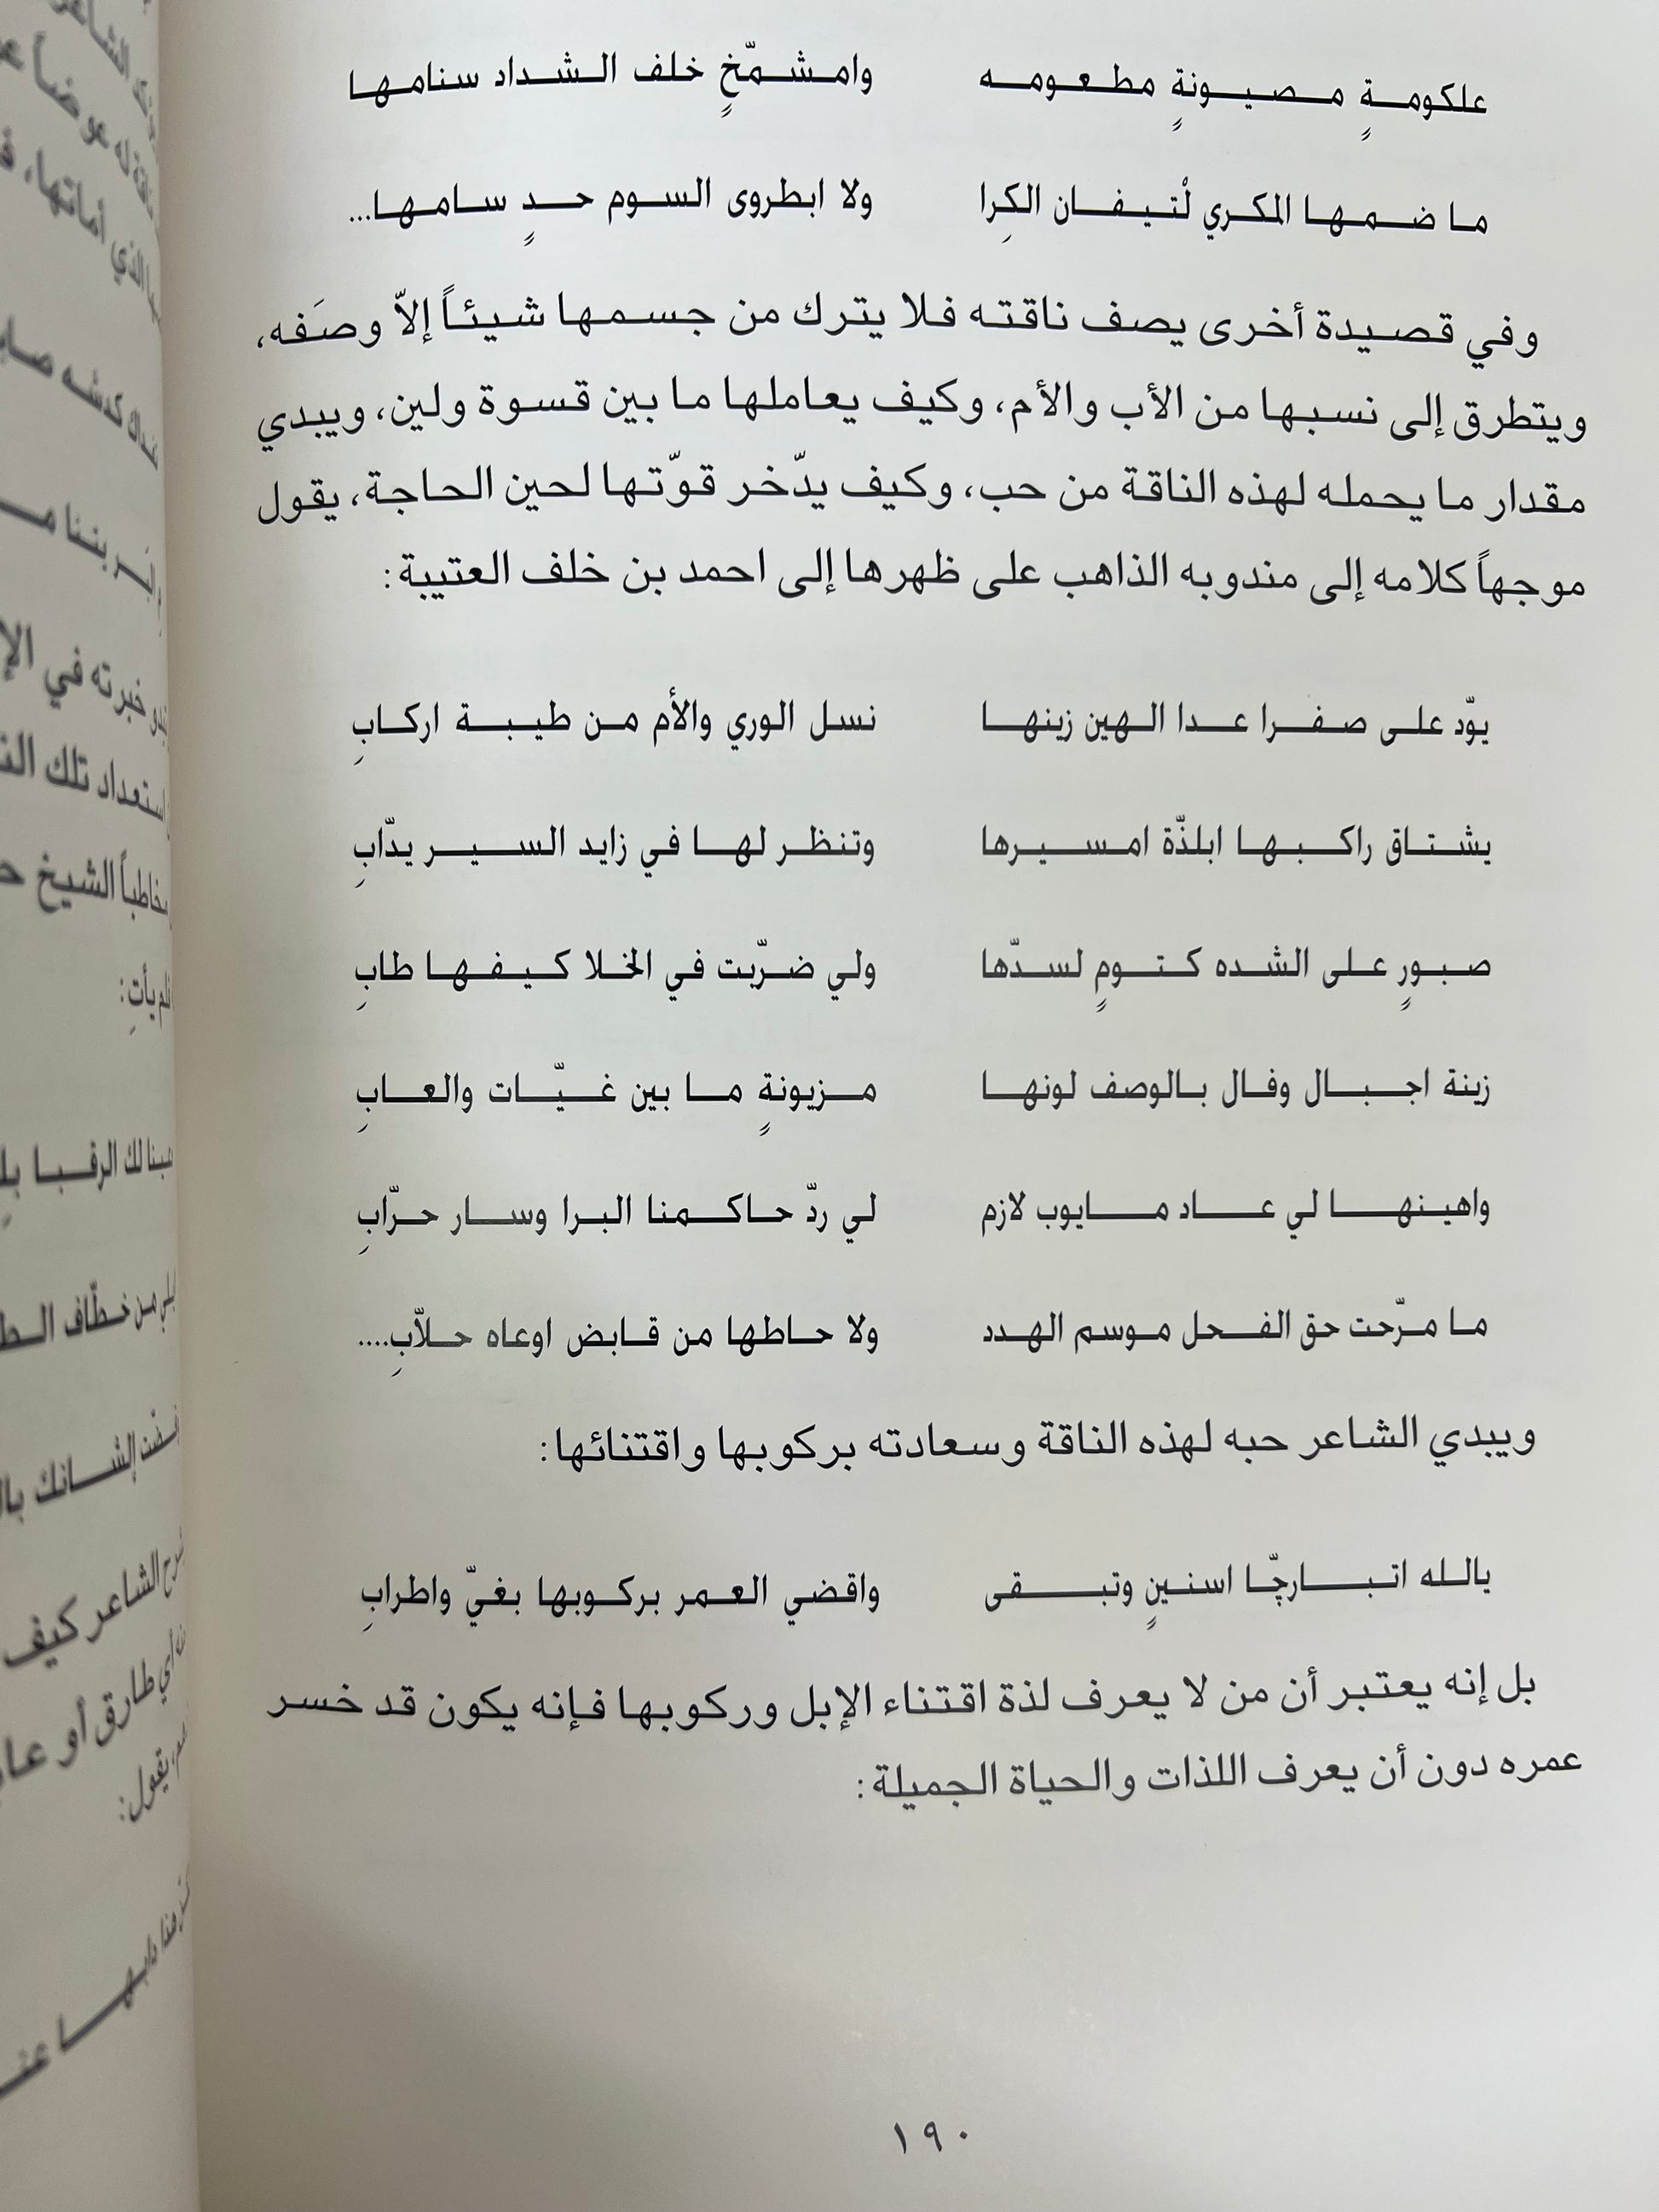 علكومةٍ مصيونةٍ مطعومه وامشمّخٍ خلف الشداد سنامها
ما ضمها المكري لْتيفان الكِرا ولا ابطروى السوم حدٍ سامها...
وفي قصيدة أخرى يصف ناقته فلا يترك من جسمها شيئاً إلاّ وصَفه،
ويتطرق إلى نسبها من الأب والأم، وكيف يعاملها ما بين قسوة ولين، ويبدي
مقدار ما يحمله لهذه الناقة من حب، وكيف يدّخر قوّتها لحين الحاجة، يقول
موجهاً كلامه إلى مندوبه الذاهب على ظهرها إلى احمد بن خلف العتيبة:
يوّد على صفرا عدا الهين زينها نسل الوري والأم من طيبة اركابِ
يشتاق راكبها ابلذّة امسيرها وتنظر لها في زايد السير يدّابِ
صبورٍ على الشده كتومٍ لسدّها ولي ضرّبت في الخلا كيفها طابِ
زينة اجبال وفال بالوصف لونها مزيونةٍ ما بين غيّات والعابِ
واهينها لي عاد مايوب لازم لي ردّ حاكمنا البرا وسار حرّابِ
ما مرّحت حق الفحل موسم الهدد ولا حاطها من قابض اوعاه حلاّبِ....
ويبدي الشاعر حبه لهذه الناقة وسعادته بركوبها واقتنائها:
يالله اتبارچّا اسنينٍ وتبقى واقضي العمر بركوبها بغيّ واطرابِ
بل إنه يعتبر أن من لا يعرف لذة اقتناء الإبل وركوبها فإنه يكون قد خسر
عمره دون أن يعرف اللذات والحياة الجميلة:
١٩٠